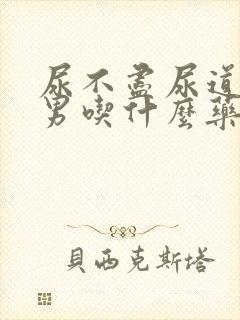 尿不盡尿道
男喫什麼藥
貝西克斯塔